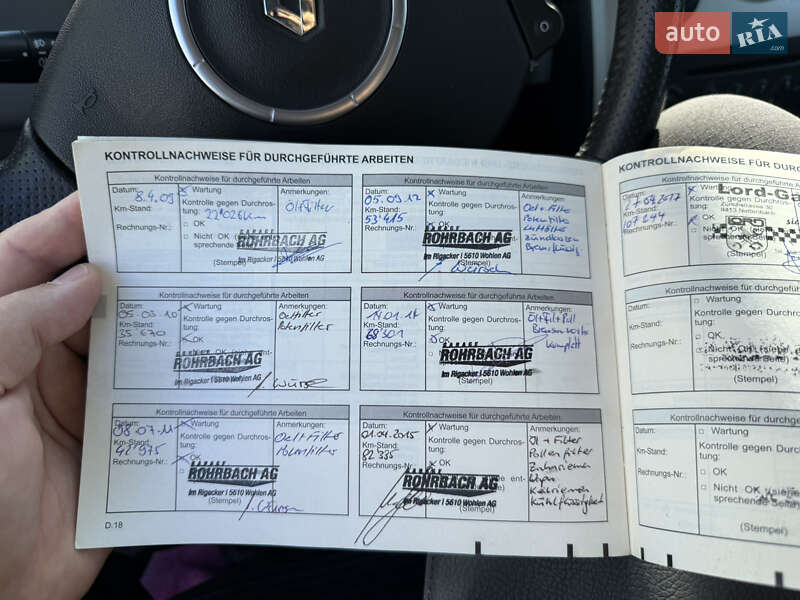 auto RIA.com
KONTROLLNACHWEISE FÜR DURCHGEFÜHRTE ARBEITEN
Kontrollnachweise für durchgeführte Arbeiten
Datum: 8.4.09
Km-Stand: 22'026km
Rechnungs-Nr.:
x Wartung
Kontrolle gegen Durchrostung:
□ OK
□ Nicht OK
sprechende
ROHRBACH AG
Im Rigacker I 5610 Wohlen AG
(Stempel)
Anmerkungen:
Öl+Filter
Kontrollnachweise für durchgeführte Arbeiten
Datum: 05.03.10
Km-Stand: 35'670
Rechnungs-Nr.:
x Wartung
Kontrolle gegen Durchrostung:
x OK
ROHRBACH AG
Im Rigacker I 5610 Wohlen AG
(Stempel)
Anmerkungen:
Oelfilter
Pollenfilter
Kontrollnachweise für durchgeführte Arbeiten
Datum: 08.07.11
Km-Stand: 42'975
Rechnungs-Nr.:
x Wartung
Kontrolle gegen Durchrostung:
x OK
ROHRBACH AG
Im Rigacker I 5610 Wohlen AG
(Stempel)
Anmerkungen:
Oel+Filter
Pollenfilter
D.18
Kontrollnachweise für durchgeführte Arbeiten
Datum: 05.09.12
Km-Stand: 53'415
Rechnungs-Nr.:
x Wartung
Kontrolle gegen Durchrostung:
□ OK
ROHRBACH AG
Im Rigacker I 5610 Wohlen AG
(Stempel)
Anmerkungen:
Oel+Filter
Pollenfilter
Luftfilter
Zündkerzen
Kontrollnachweise für durchgeführte Arbeiten
Datum:
Km-Stand: 68'301
Rechnungs-Nr.:
x Wartung
Kontrolle gegen Durchrostung:
OK
ROHRBACH AG
Im Rigacker I 5610 Wohlen AG
(Stempel)
Anmerkungen:
komplett
Kontrollnachweise für durchgeführte Arbeiten
Datum: 01.04.2015
Km-Stand: 82'335
Rechnungs-Nr.:
x Wartung
Kontrolle gegen Durchrostung:
x OK
ROHRBACH AG
Im Rigacker I 5610 Wohlen AG
(Stempel)
Anmerkungen:
Öl + Filter
Pollenfilter
Zahnriemen
Keilriemen
Kühlflüssigkeit
KONTROLLNACHWEISE FÜR DURC
Kontrollnachweise für durchge
Datum:
Km-Stand: 107'244
Rechnungs-Nr.:
Lord-Ga
Zürcherstrasse 30
8413 Neftenbach
(Stempel)
Kontrollnachweise für durchge
Datum:
Km-Stand:
Rechnungs-Nr.:
□ Wartung
Kontrolle gegen Durchrostung:
□ OK
(Stempel)
Kontrollnachweise für durchge
Datum:
Km-Stand:
Rechnungs-Nr.:
□ Wartung
Kontrolle gegen Durchrostung:
□ OK
□ Nicht OK
sprechende Seite
(Stempel)